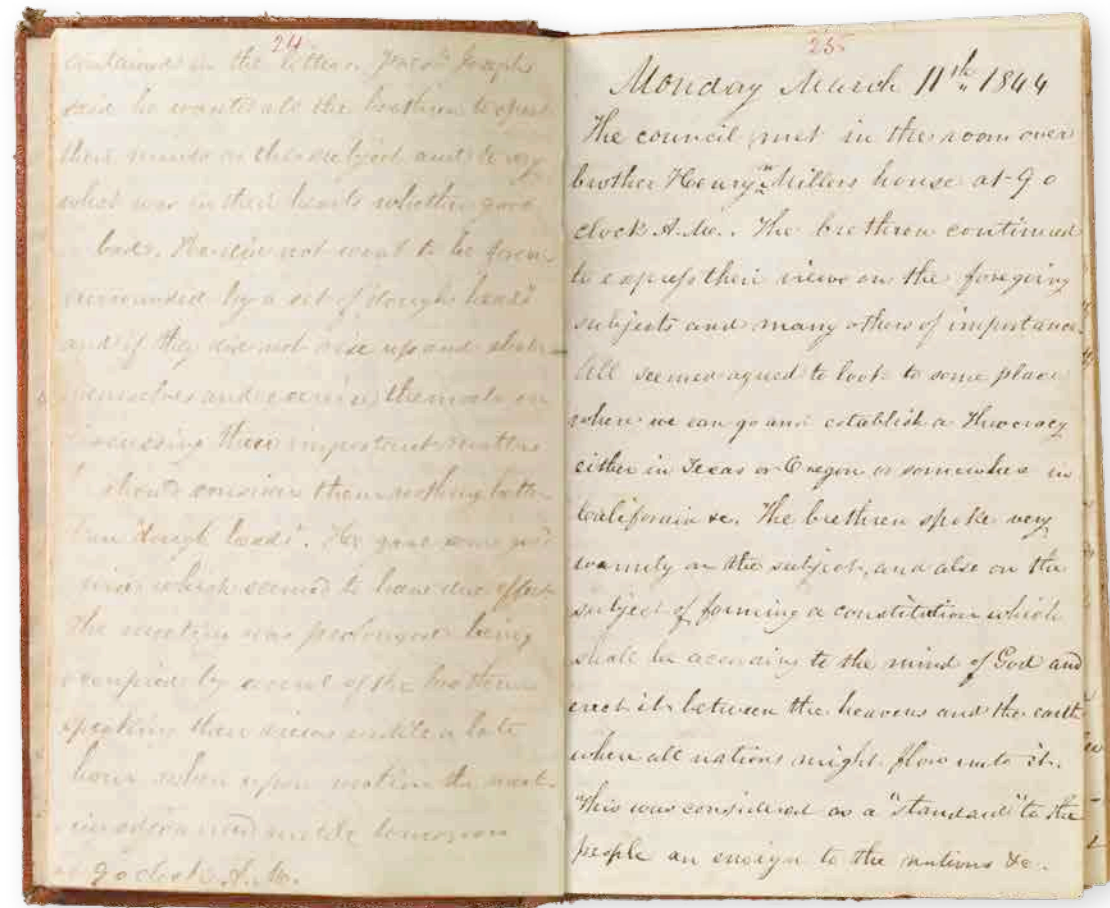 24
contained in the letters. Prest. Joseph
said he wanted all the brethren to speak
their minds on this subject and to say
what was in their hearts whether good
bad. He did not want to be forever
surrounded by a set of "dough heads"
and if they did not rise up and shake
themselves and exercise themselves in
discussing these important matters
should consider them nothing better
than "dough heads". He gave some
which seemed to have due effect
The meeting was prolonged being
occupied by several of the brethren
speaking their views until a late
hour when upon motion the
adjourned until tomorrow
at 9 o clock A.M.
25
Monday March 11th. 1844
The council met in the room over
brother Henry W. Millers house at 9 o
clock A.M. The brethren continued
to express their views on the foregoing
subjects and many others of importance.
All seemed agreed to look to some place
where we can go and establish a Theocracy
either in Texas or Oregon or somewhere in
California &c. The brethren spoke very
warmly on the subject, and also on the
subject of forming a constitution which
shall be according to the mind of God and
erect it between the heavens and the earth
where all nations might flow unto it.
This was considered as a "standard" to the
people an ensign to the nations &c.